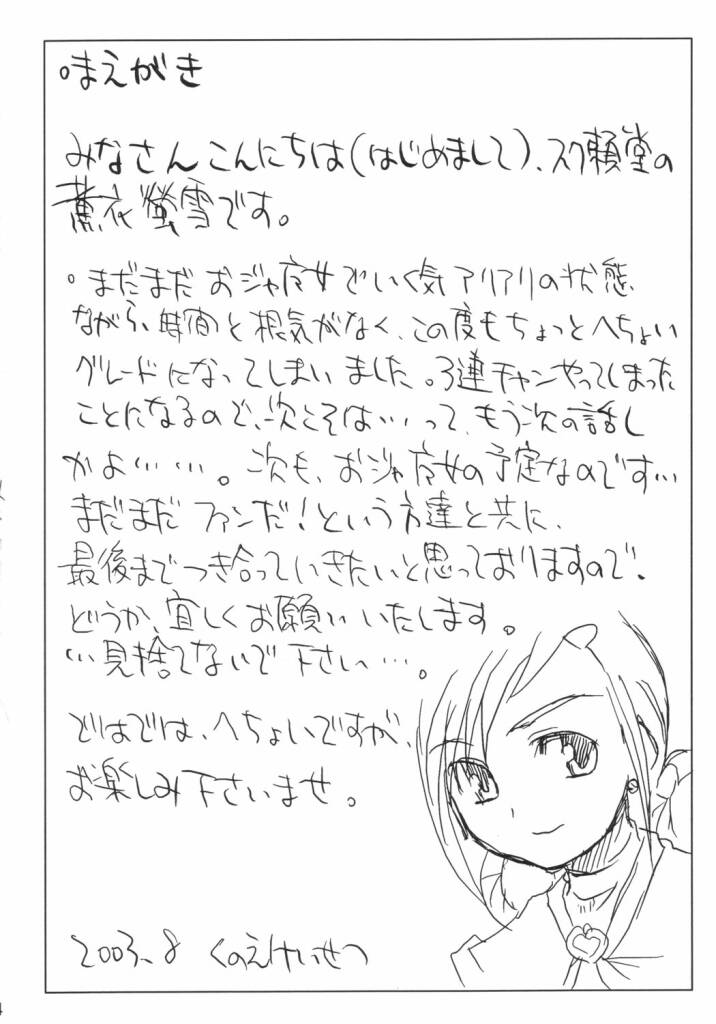 ・まえがき
みなさんこんにちは(はじめまして)、スタ頼堂の
薫衣螢雪です。
・まだまだおジャ魔女でいく気アリアリの状態
ながら、時間と根気がなく、この度もちょっとへちょい
グレードになってしまいました。3連チャンやってしまった
ことになるので、次こそは…って、もう次の話し
かよ………。次も、おジャ魔女の予定なのです…
まだまだファンだ!という方達と共に、
最後までつき合っていきたいと思っておりますので、
どうか、宜しくお願いいたします。
…見捨てないで下さい…。
ではでは、へちょいですが、
お楽しみ下さいませ。
2003.8 くのえけいせつ